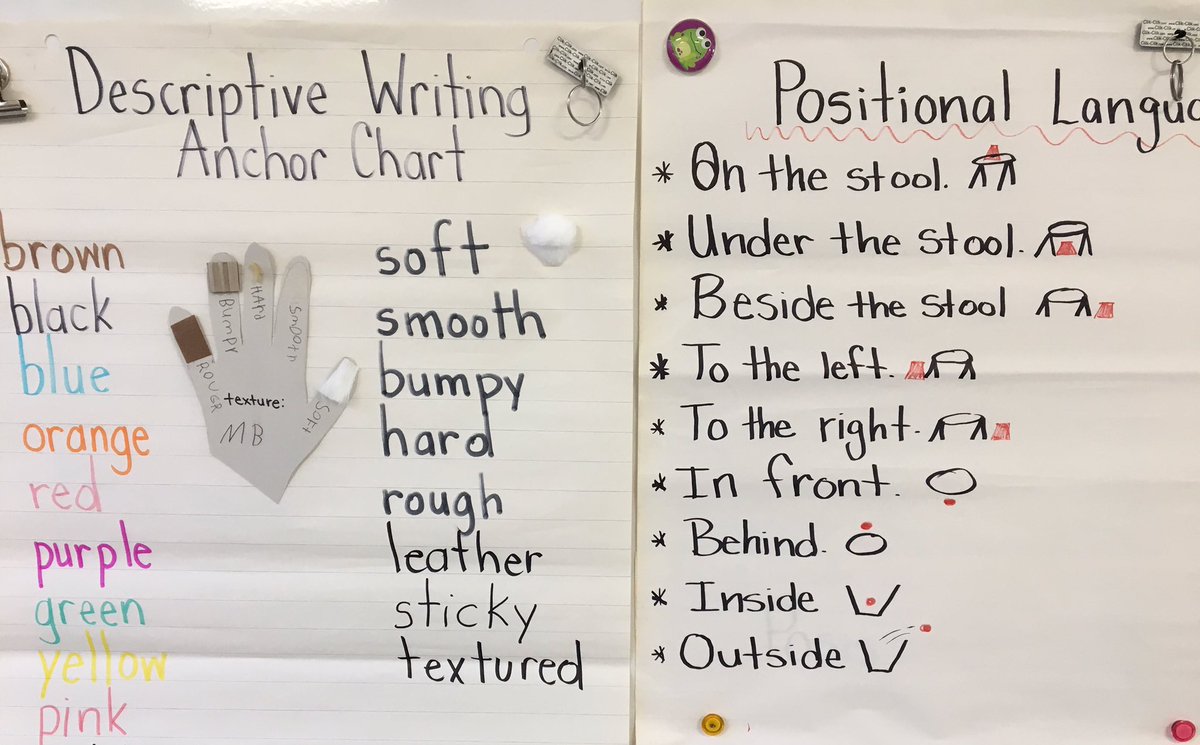 Descriptive Writing
Anchor Chart
brown
black
blue
orange
red
purple
green
yellow
pink
ROUGR
BUMPY
HARd
SMOOTH
SOFT
texture:
MB
soft
smooth
bumpy
hard
rough
leather
sticky
textured
Positional Langua
* On the stool.
* Under the stool.
* Beside the stool
* To the left.
* To the right.
* In front.
* Behind.
* Inside
* Outside